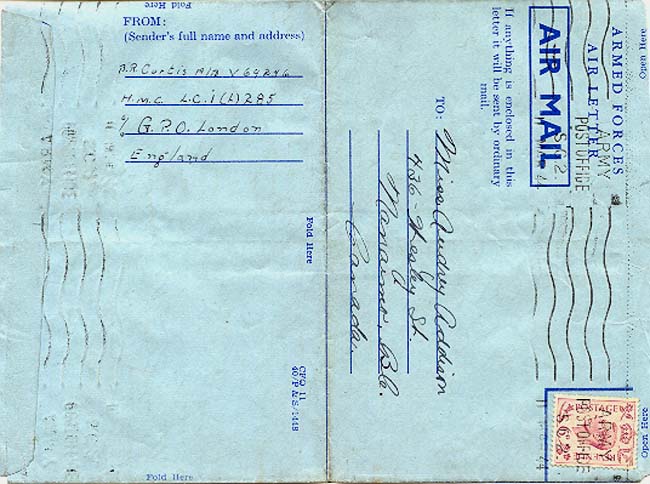 Fold Here
FROM:
(Sender's full name and address)
A.R. Curtis A/B V64246
H.M.C. L.C.I(L) 285
c/o G.P.O. London
England
Fold Here
CFQ 11
Fold Here
ARMED FORCES
AIR LETTER
ARMY
POST OFFICE
S.G.2.
AIR MAIL
If anything is enclosed in this
letter it will be sent by ordinary
mail.
TO:
Miss Audrey Addison
436 - Wesley St.
Nanaimo, B.C.
Canada.
Open Here
Open Here
POSTAGE
ARMY
POST OFFICE
44